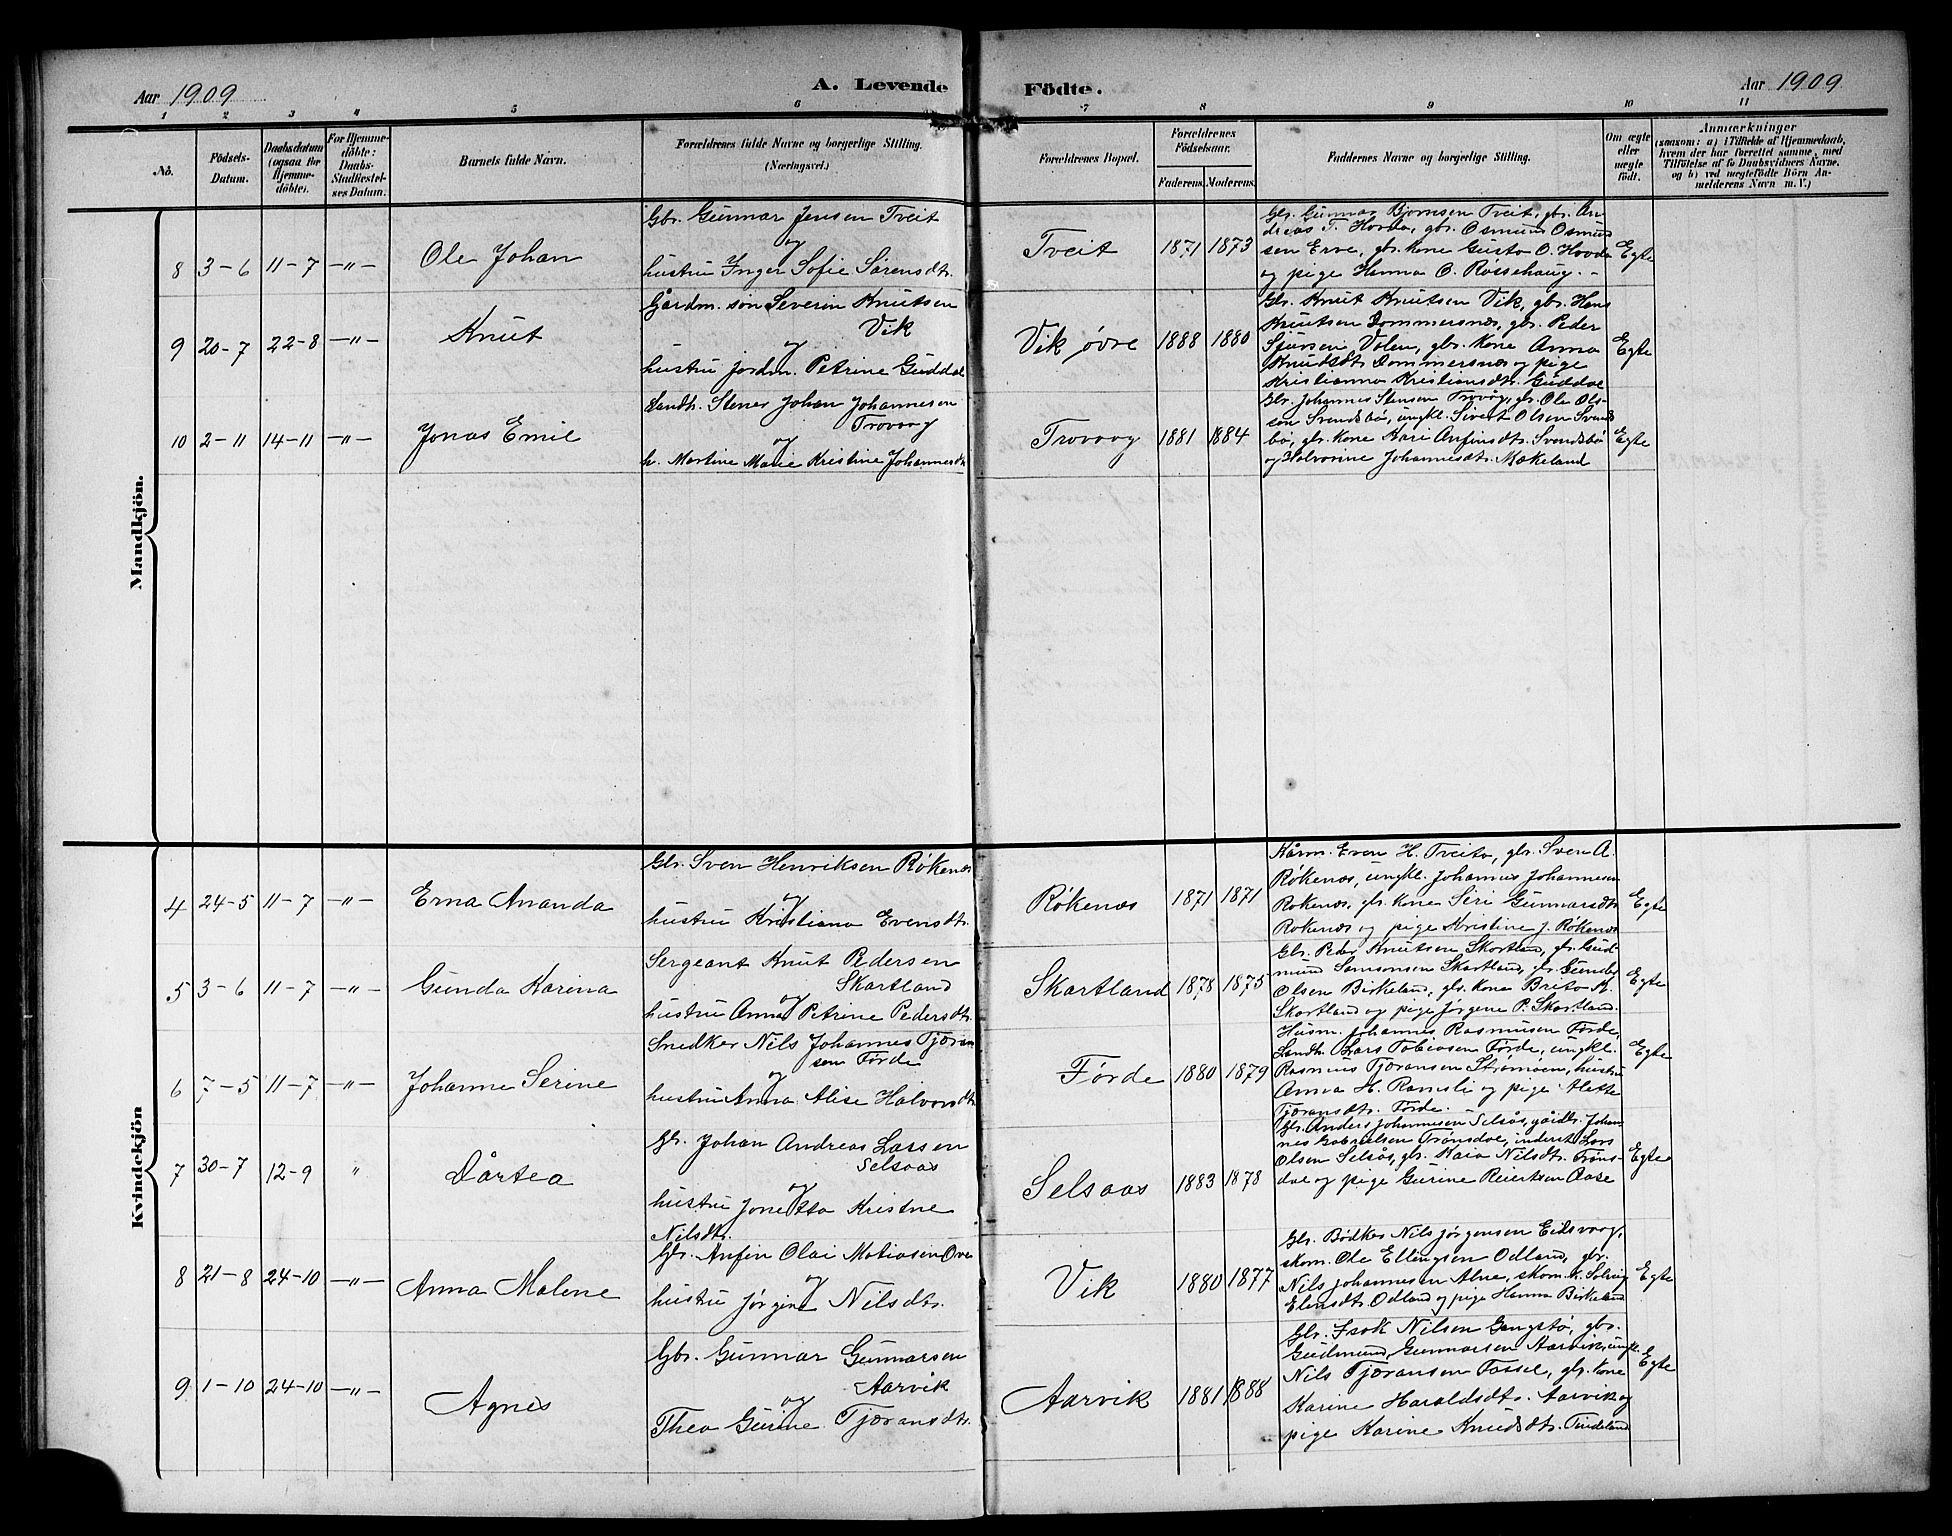 Aar 1909
A. Levende Födte.
Aar 1909
1 2 3 4 5 6 7 8 9 10 11
No.
Födsels-
Datum.
Daabsdatum
(ogsaa for
Hjemme-
döbte).
For Hjemme-
döbte:
Daabs-
Stadfæstel-
ses Datum.
Barnets fulde Navn.
Forældrenes fulde Navne og borgerlige Stilling.
(Næringsvei.)
Forældrenes Bopæl.
Forældrenes
Födselsaar.
Faderens. Moderens.
Faddernes Navne og borgerlige Stilling.
Om ægte
eller
uægte
födt.
Anmærkninger
(saasom: a) i Tilfælde af Hjemmedaab,
hvem der har forrettet samme, med
Tilföielse af to Daabsvidners Navne,
og b) ved uægtefödte Börn An-
melderens Navn m. V.)
Mandkjön.
8 3-6 11-7 -"- Ole Johan
Gbr. Gunnar Jensen Tveit
og
hustru Inger Sofie Sørensdtr.
Tveit 1871 1873
Gbr. Gunnar Bjørnsen Tveit, gbr. An-
dreas T. Hovda, gbr. Osmund Osmund
sen Erve, gbr. kone Gusta O. Hovda
og pige Hanna O. Røssehaug. -
Egte
9 20-7 22-8 -"- Knut
Gårdm. søn Severin Knutsen
Vik
og
hustru jordm. Petrine Guddal
Vik øvre 1888 1880
Gbr. Knut Knutsen Vik, gbr. Hans
Knutsen Dommersnes, gbr. Peder
Sjursen Valen, gbr. kone Anna
Knudsdtr. Dommersnes og pige
Kristianna Kristiansdtr. Guddal
Egte
10 2-11 14-11 -"- Jonas Emil
Landh. Stener Johan Johannesen
Trovaag
og
h. Martine Marie Kristine Johannesdtr
Trovaag 1881 1884
Gbr. Johannes Stensen Trovåg, gbr. Ole Ols-
søn Svendsbø, ungkl. Sivert Olsen Svends
bø, gbr. kone Kari Anfinsdtr. Svendsbø
og Halvorine Johannesdtr. Mækeland
Egte
Kvindekjön
4 24-5 11-7 -"- Erna Ananda
Gbr. Sven Henriksen Røkenes
og
hustru Kristiana Evensdtr.
Røkenes 1871 1871
Kårm. Even H. Tveita, gbr. Sven A.
Røkenes, ungkl. Johannes Johannesen
Røkenes, gbr. kone Siri Gunnarsdtr.
Røkenes og pige Kristine J. Røkenes
Egte
5 3-6 11-7 -"- Gunda Karina
Sergeant Knut Pedersen
Skartland
og
hustru Anna Petrine Pedersdtr.
Skartland 1878 1875
Gbr. Peder Knutsen Skartland, gbr. Gud-
mund Samsonsen Skartland, gbr. Gunder
Olsen Birkeland, gbr. kone Brita K.
Skartland og pige Jørgene P. Skartland.
Egte
6 7-5 11-7 -"- Johanne Serine
Snedker Nils Johannes Tjøran
sen Førde
og
hustru Anna Alise Halvorsdtr
Førde 1880 1879
Husm. Johannes Rasmusen Førde,
Landh. Lars Tobiasen Førde, ungkl.
Rasmus Tjøransen Strømøen, hustru
Anna H. Ramsli og pige Alette
Tjøransdtr. Førde. -
Egte
7 30-7 12-9 " Dårtea
Gbr. Johan Andreas Larsen
Selsaas
og
hustru Jonetta Kristne
Nilsdtr.
Selsaas 1883 1878
Gbr. Anders Johannesen Selsås, gårdbr. Johan-
nes Gabrielsen Trønsdal, inderst Lars
Olsen Selsås, gbr. Kaia Nilsdtr. Trøns-
dal og pige Gurine Reiertsen Aase
Egte
8 21-8 24-10 -"- Anna Malene
Gbr. Anfin Olai Matiasen Øvre
og
hustru Jørgine Nilsdtr.
Vik 1880 1877
Gbr. Bødker Nils Jørgensen Eidsvaag,
skom. Ole Ellingsen Odland, gbr.
Nils Johannesen Alne, skom. k. Solvig
Elensdtr. Odland og pige Hanna Birkeland
Egte
9 1-10 24-10 -"- Agnes
Gbr. Gunnar Gunnarsen
Aarvik
og
Thea Gurine Tjøransdtr.
Aarvik 1881 1888
Gbr. Isak Nilsen Gangstø, gbr.
Gudmund Gunnarsen Aarvik, ungk.
Nils Tjøransen Fossel, gbr. kone
Karine Haraldsdtr. Aarvik og
pige Karine Knudsdtr. Tindeland
Egte